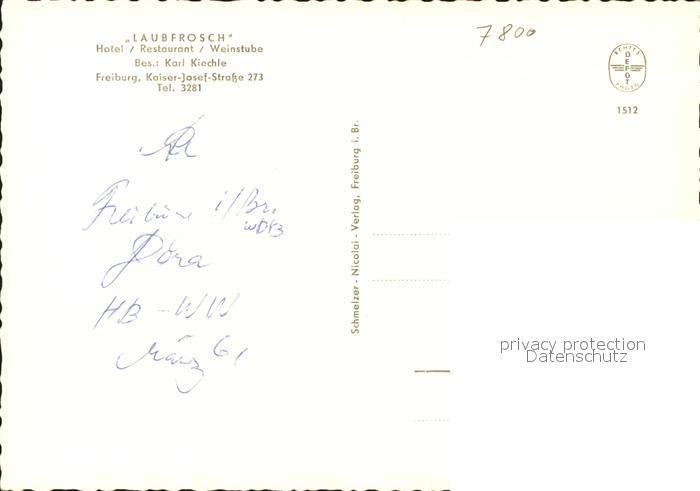 „LAUBFROSCH"
Hotel / Restaurant / Weinstube
Bes.: Karl Kiechle
Freiburg, Kaiser-Josef-Straße 273
Tel. 3281
7800
ECHTES
DEFOT
PHOTO
1512
i/Br.
Dora
HB - WW
März 61
Schmelzer - Nicolai - Verlag, Freiburg i. Br.
privacy protection
Datenschutz